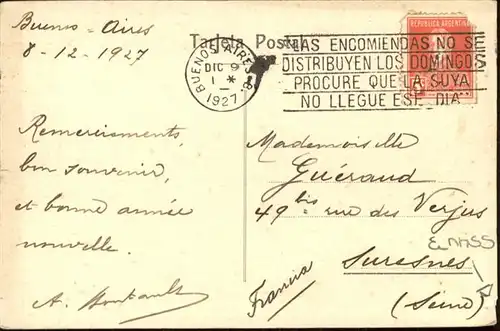 Buenos-Aires
8-12-1927
Tarjeta Postal
REPUBLICA ARGENTINA
BUENOS AIRES
DIC 9
1 *
1927
"LAS ENCOMIENDAS NO SE
DISTRIBUYEN LOS DOMINGOS
PROCURE QUE LA SUYA
NO LLEGUE ESE DIA"
Remerciements,
bon souvenir,
et bonne année
nouvelle.
A.
Mademoiselle
Guéraud
49 bis rue des Verjus
Suresnes
(Seine)
Francia